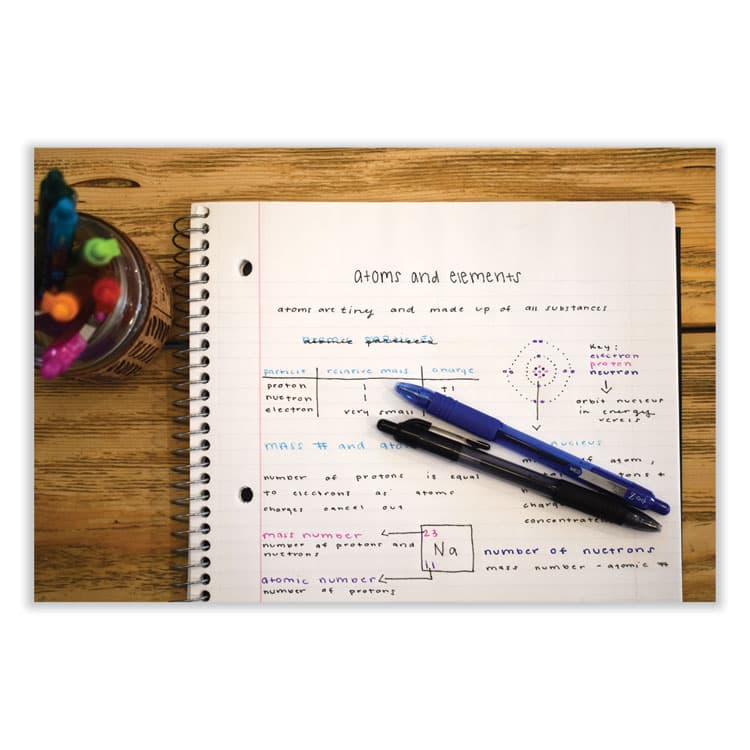 atoms and elements
atoms are tiny and made up of all substances
atomic particles
particle relative mass charge
proton 1 +1
nuetron 1
electron very small
Key:
electron
proton
neutron
orbit nucleus
in energy
verels
mass # and
nucleus
of atom,
number of protons is equal
to electrons as atoms
charges cancel out
concentrate
mass number
number of protons and
nuetrons
23
Na
11
atomic number
number of protons
number of nuetrons
mass number - atomic #
Z-Grip